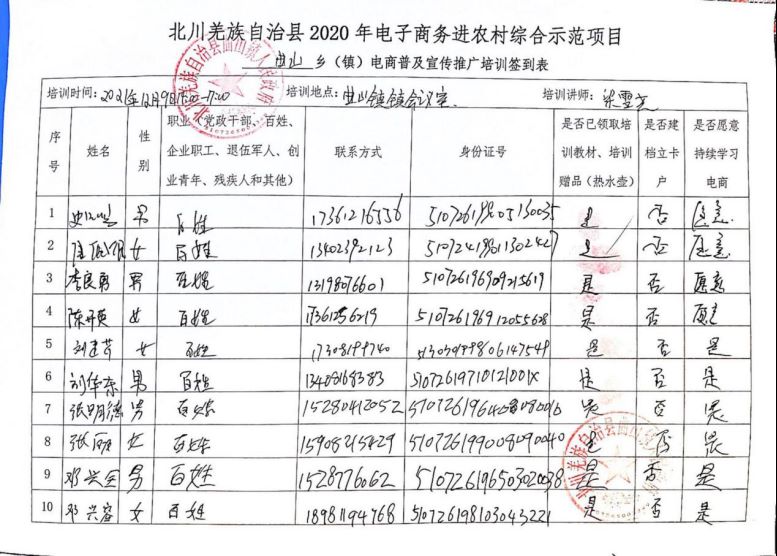 北川羌族自治县 2020 年电子商务进农村综合示范项目
曲山 乡（镇）电商普及宣传推广培训签到表
培训时间：2021年12月9日 -17:00 培训地点：曲山镇镇会议室 培训讲师：
序号 姓名 性别 职业（党政干部、百姓、企业职工、退伍军人、创业青年、残疾人和其他） 联系方式 身份证号 是否已领取培训教材、培训赠品（热水壶） 是否建档立卡户 是否愿意持续学习电商
1 男 百姓 17361216556 是 否 愿意
2 女 百姓 13402392123 是 否 愿意
3 李良勇 男 百姓 1319876601 510726196909215619 是 否 愿意
4 陈开英 女 百姓 17361256219 510726196912055628 是 否 愿意
5 女 百姓 17308199740 是 否 是
6 刘华东 男 百姓 13408168383 51072619710121001X 是 否 是
7 张明德 男 百姓 15280412052 是 否 是
8 女 百姓 15908215429 510726199008090040 是 否 是
9 邓兴全 男 百姓 1528776062 510726196503020038 是 否 是
10 邓兴容 女 百姓 18981194768 510726198103043221 是 否 是
北川羌族自治县曲山镇人民政府